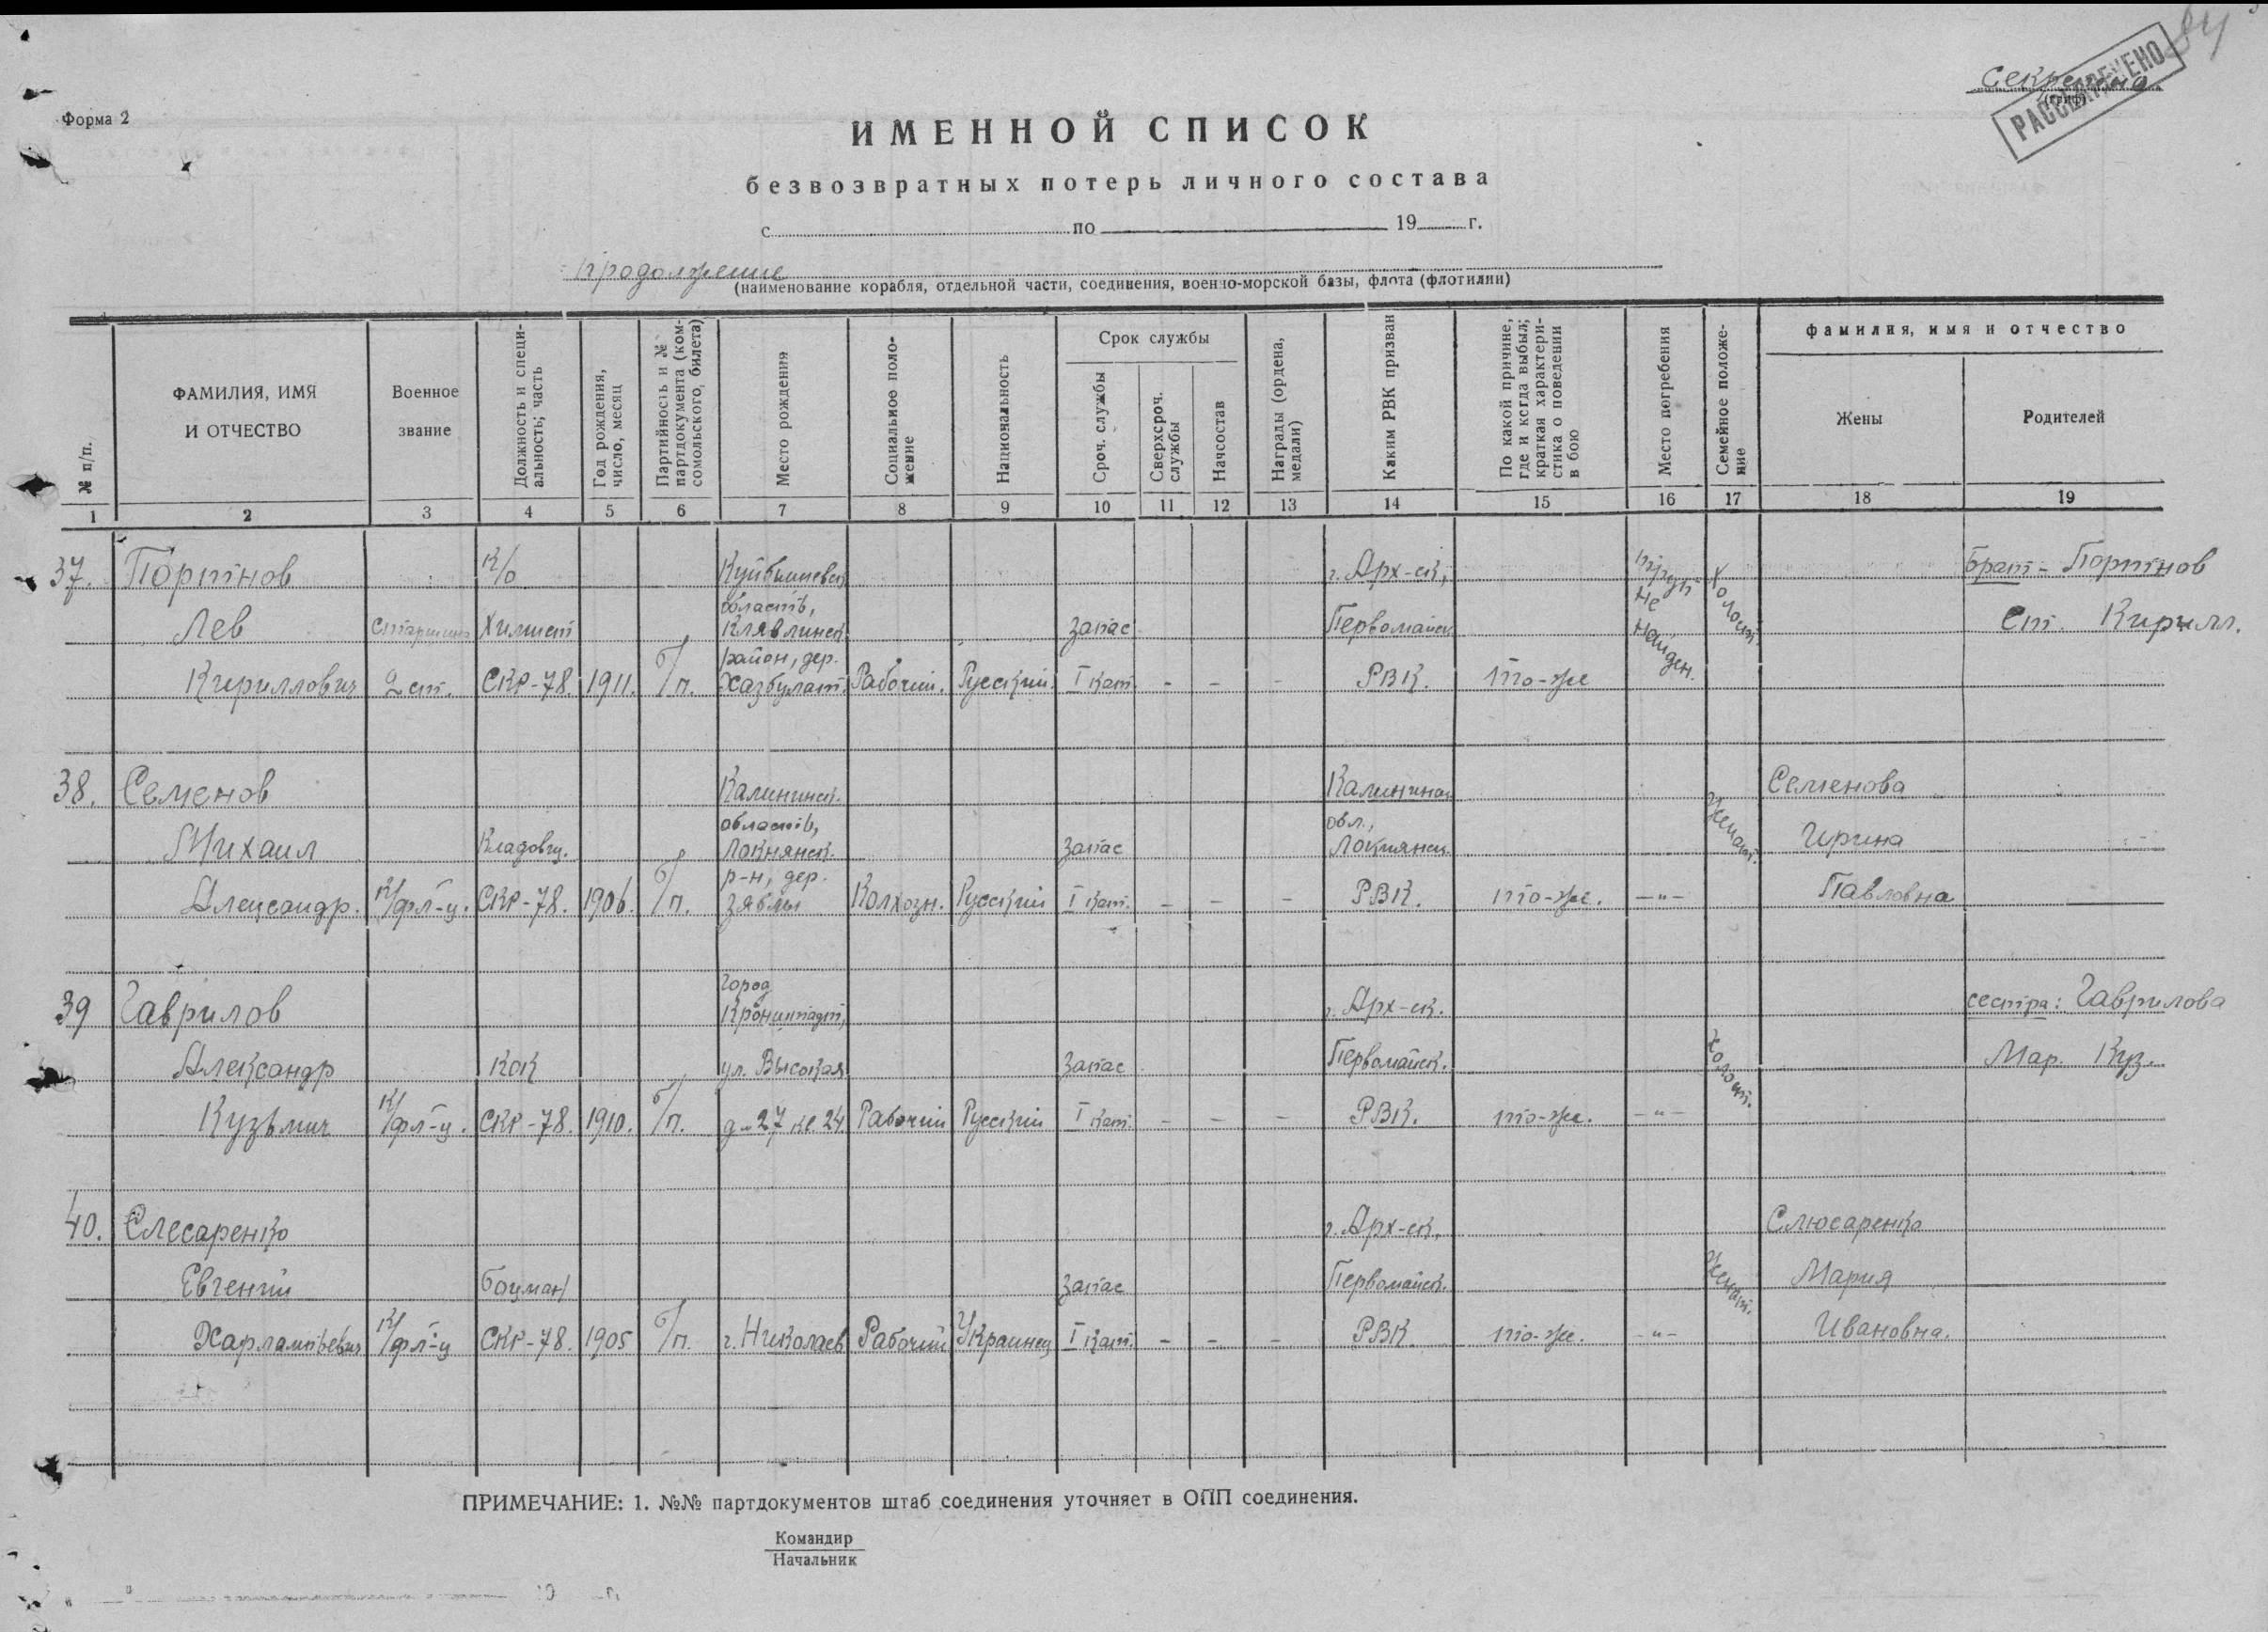 84
Секретно
(гриф)
РАССЕКРЕЧЕНО
Форма 2
ИМЕННОЙ СПИСОК
безвозвратных потерь личного состава
с по 19 г.
продолжение
(наименование корабля, отдельной части, соединения, военно-морской базы, флота (флотилии)
№ п/п.
ФАМИЛИЯ, ИМЯ
И ОТЧЕСТВО
Военное
звание
Должность и специ-
альность; часть
Год рождения,
число, месяц
Партийность и №
партдокумента (ком-
сомольского билета)
Место рождения
Социальное поло-
жение
Национальность
Срок службы
Сроч. службы
Сверхсроч.
службы
Начсостав
Награды (ордена,
медали)
Каким РВК призван
По какой причине,
где и когда выбыл;
краткая характери-
стика о поведении
в бою
Место погребения
Семейное положе-
ние
фамилия, имя и отчество
Жены
Родителей
1 2 3 4 5 6 7 8 9 10 11 12 13 14 15 16 17 18 19
37. Портнов К/о Куйбышевск г. Арх-ск, труп Холост. Брат - Портнов
область, не
Лев старшина Химист Клявлинск запас Первомайск найден. Ст. Кирилл.
район, дер.
Кириллович 2 ст. СКР-78. 1911. б/п. Хазбулат. Рабочий. Русский. I кат. - - - РВК. то-же
38. Семенов Калининск. Калининск Женат. Семенова
область, обл.,
Михаил Кладовщ. Локнянск. запас Локнянск. Ирина
р-н, дер.
Александр. К/фл-ц. СКР-78. 1906. б/п. зяблы Колхозн. Русский I кат. - - - РВК. то-же. -"- Павловна
город
39 Гаврилов Кронштадт, г. Арх-ск. Холост. сестра: Гаврилова
Александр Кок ул. Высокая запас Первомайск. Мар. Куз.
Кузьмич К/фл-ц. СКР-78. 1910. б/п. д-27 кв. 24 Рабочий Русский I кат. - - - РВК. то-же. -"-
40. Слесаренко г. Арх-ск, Женат. Слюсаренко
Евгений боцман запас Первомайск. Мария
Харлампьевич К/фл-ц СКР-78. 1905 б/п. г. Николаев Рабочий Украинец I кат. - - - РВК то-же. -"- Ивановна.
ПРИМЕЧАНИЕ: 1. №№ партдокументов штаб соединения уточняет в ОПП соединения.
Командир
Начальник